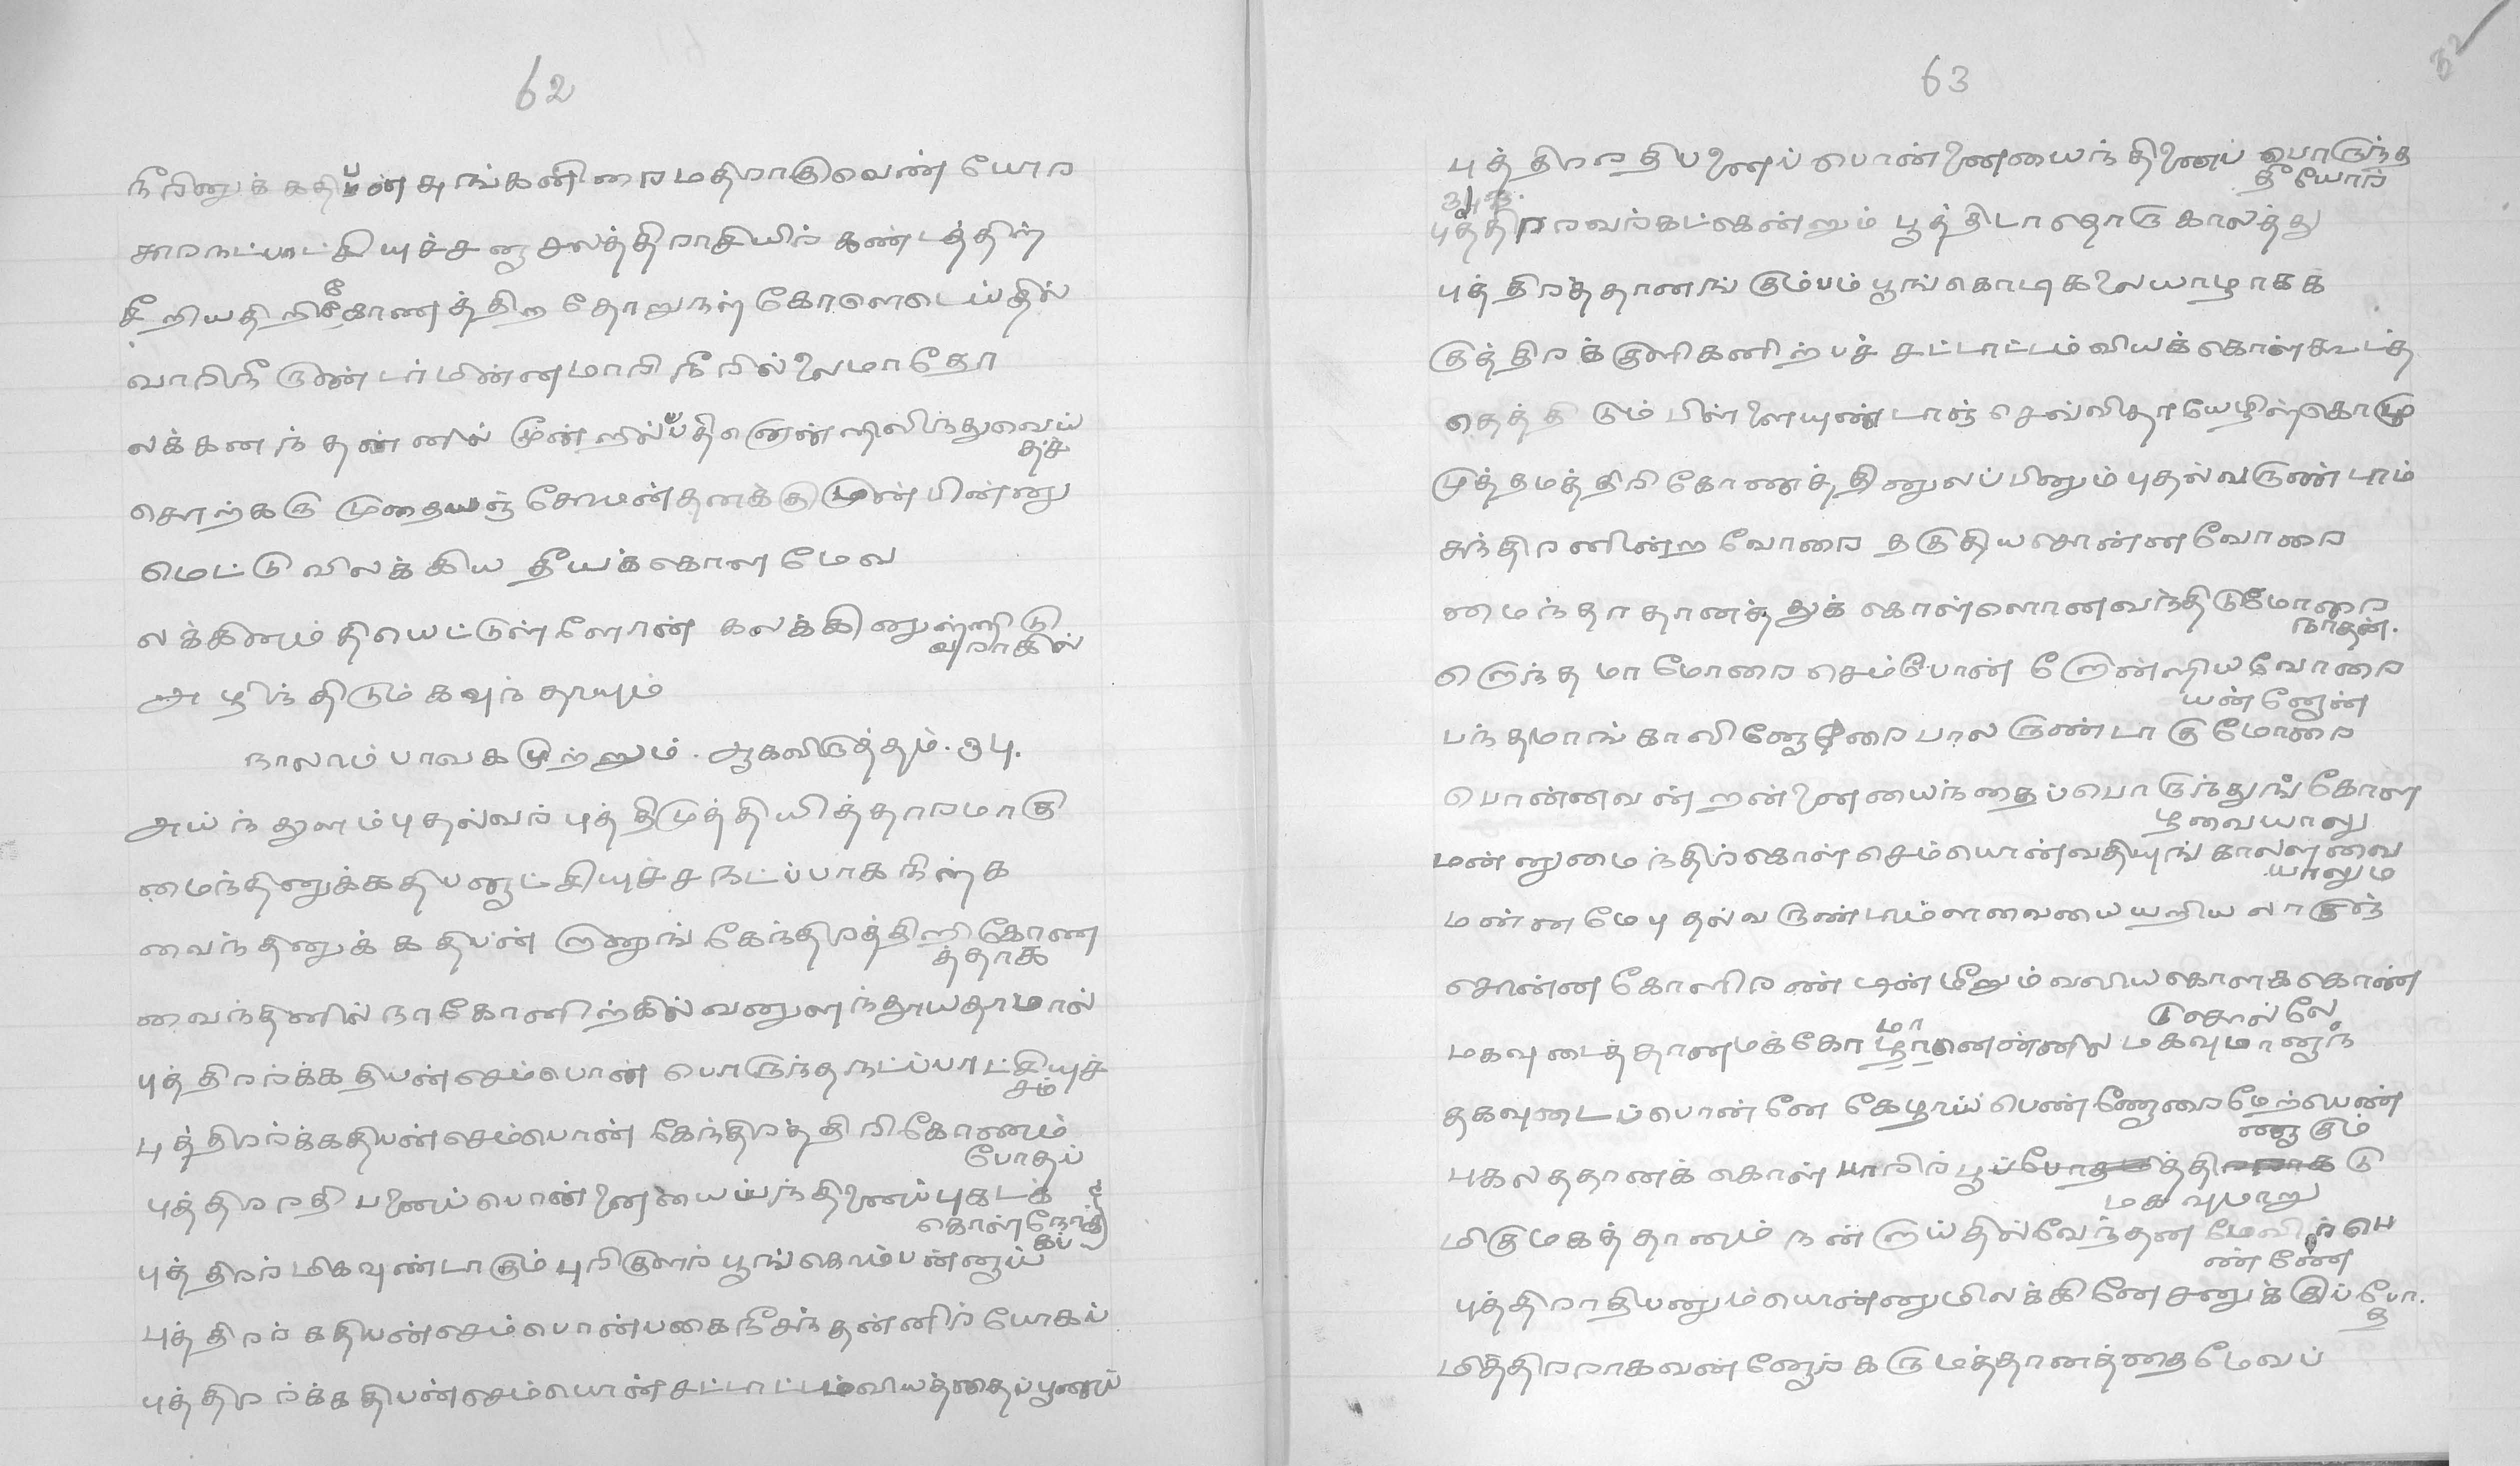 62
நீரினுக்கதிபன் துங்கனிறைமதிராகுவெண் யோர
சுரநட்பாட்சியுச்சனுசலத்திராசியிற் கண்டத்தில்
சீறியதிறிகோணத்திற தோறுநற் கோளெடெய்தில்
வாரிநீ ருண்டர் மின்னமாரி நீரில்லைமாதோ
லக்கனந் தன்னில் மூன்றில்ப்பதினொன்றிலிந்துவைய்
த்ச்
சொற்கரு முதையஞ் சோமன்தனக்கு முன் பின்னு
மெட்டு விலக்கிய தீயக்கொள மேவ
லக்கினம் தியெட்டுள்ளோன் கலக்கினுள்ளிடு
வராகில்
அழிந்திடும் கவுந்தாயும்
நாலாம் பாவகமுற்றும். ஆகவிருத்தம். ௩௰.
அய்ந்துளம்புதல்வர் புத்திமுத்தியித்தாரமாகு
மைந்தினுக்கதிபனாட்சியுச்சநட்ப்பாகநிள்க
வைந்தினுக்கதிபன் றானுங் கேந்திரத்திறிகோண
த்தாக
வைந்தினில் நாகோனிற்கில் வனுளந்தூயதாமால்
புத்திரர்க்கதிபன்செம்பொன் பொருந்தநட்ப்பாட்சியுச்
சம்
புத்திரர்க்கதிபன்செம்பொன் கேந்திரத்திரிகோணம்
போதப்
புத்திரரதிபனைப்பொன்னையைய்ந்தினைப்புகடக்
கொள்நோக்
கப்
புத்திரர் மிகவுண்டாகும் புரிகுளர் பூங்கொம்பன்னாய்
புத்திரர்கதிபன்செம்பொன்பகைநீசந்தன்னிற் யோகப்
புத்திரர்க்கதிபன்செம்பொன்சட்டாட்டம்வியத்தைப்பூணய்
63
32
புத்திரரதிபனைப் பொன்னையைந்தினைப் பொருந்த
தீயோர்
புத்திரரவர்கட்கென்றும் பூத்திடாதொருகாலத்து
புத்திரத்தானங் கும்பம் பூங்கொடிகலையாழாகக்
குத்திரக்குளிகனிற்பச் சட்டாட்டம்வியக்கொள்கூடத்
தெத்திடும் பிள்ளையுண்டாஞ் செவ்விதாயேழில்கொமு
முத்தமத்திரிகோணத்தினுலப்பினும்புதல்வருண்டாம்
சுந்திரனின்ற வோரை தகுதியசொன்னவோரை
மைந்தாதானத்துக் கொள்ளொனவந்திடுமோரை
நாதன்.
றெந்தமாமோரை செம்போன் றேன்னியவோரை
யன்னேன்
பந்தமாங்காலினேரை பாலருண்டாகுமோரை
பொன்னவன்றன்னையைந்தைப்பொருந்துங்கோள
ழவையாலு
மன்னுமைந்திற்கொள்செம்பொன்வதியுங்காலளவை
யாலும
மன்னமேபுதல்வருண்டாம்ளவைமையறியலாகுந்
சொன்னகோளிரண்டின்மீறும்வலியகொளக்கொண்
டுசொல்லே
மகவுடைத்தானமக்கோமானென்னில் மகவுமானுந்
தகவுடைப்பொன்னே கேழாய்பெண்ணேரைமேற்யெண்
ணுகும்
புகலத்தானக்கொள்
மகவுமாறு
மிகுமகத்தானும் நன்றாய்தில்வேந்தன மேவிற்பெ
ண்ணே
புத்திராதியனும்யொன்னுமிலக்கினேசனுக்குப்போ.
த
மித்திரராகவன்னேற் கருமத்தானத்தைமேவப்